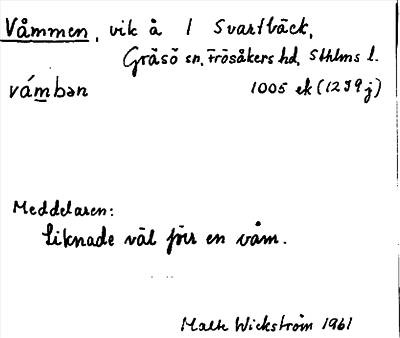 Våmmen, vik å 1 Svartbäck,
Gräsö sn, Frösåkers hd, Sthlms l.
vámbən 1005 ek (12I9j)
Meddelaren:
liknade väl förr en våm.
Malte Wickström 1961